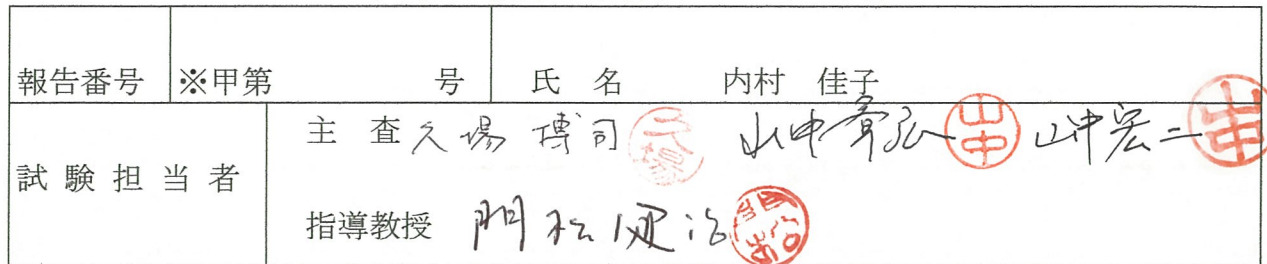 報告番号 ※甲第 号 氏 名 内村 佳子
試験担当者 主 査 久場 博司 山中章弘 山中宏二
指導教授 門松健治
久場 山中 山中 門松